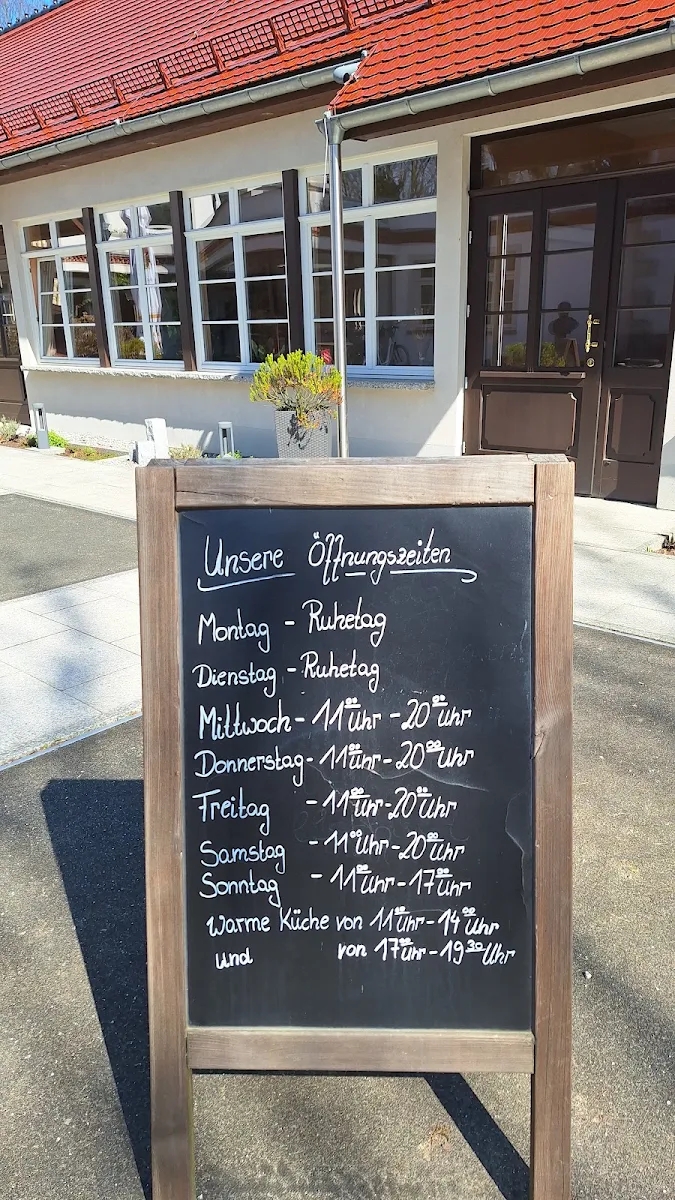 Unsere Öffnungszeiten
Montag - Ruhetag
Dienstag - Ruhetag
Mittwoch - 11⁰⁰ Uhr - 20⁰⁰ Uhr
Donnerstag - 11⁰⁰ Uhr - 20⁰⁰ Uhr
Freitag - 11⁰⁰ Uhr - 20⁰⁰ Uhr
Samstag - 11⁰⁰ Uhr - 20⁰⁰ Uhr
Sonntag - 11⁰⁰ Uhr - 17⁰⁰ Uhr
warme Küche von 11⁰⁰ Uhr - 14⁰⁰ Uhr
und von 17⁰⁰ Uhr - 19³⁰ Uhr